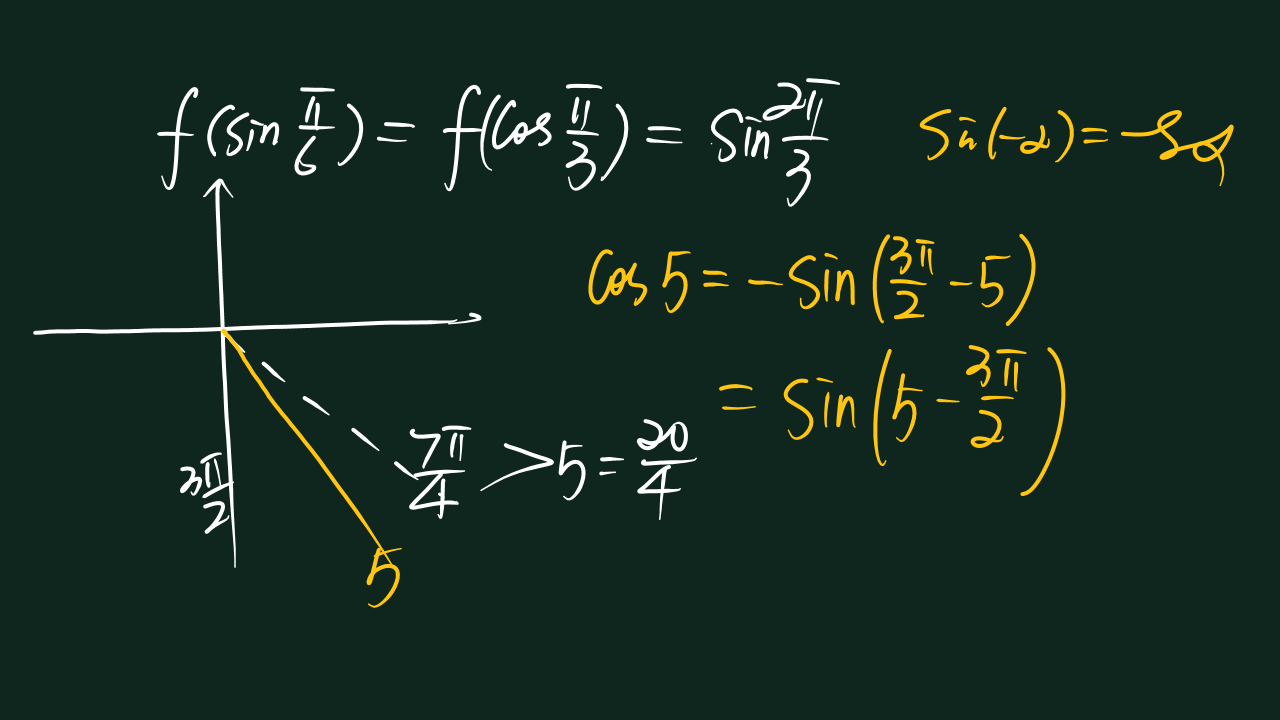 f(sin π/6) = f(cos π/3) = sin 2π/3
sin(-α) = -sα
cos 5 = -sin(3π/2 - 5)
= sin(5 - 3π/2)
7π/4 > 5 = 20/4
3π/2
5